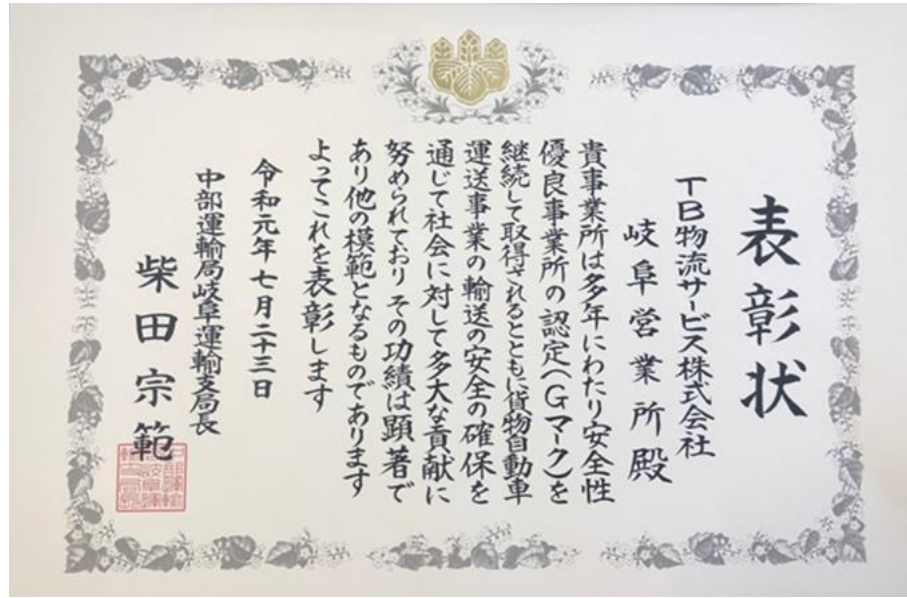 表彰状
TB物流サービス株式会社
岐阜営業所殿
貴事業所は多年にわたり安全性
優良事業所の認定(Gマーク)を
継続して取得されるとともに貨物自動車
運送事業の輸送の安全の確保を
通じて社会に対して多大な貢献に
努められており その功績は顕著で
あり他の模範となるものであります
よってこれを表彰します
令和元年七月二十三日
中部運輸局岐阜運輸支局長
柴田宗範